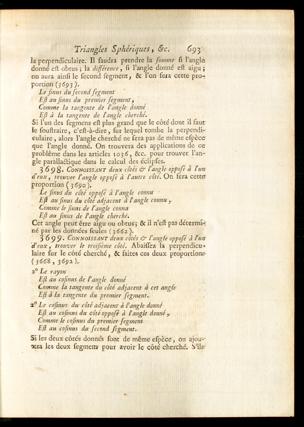 Triangles Sphériques, &c. 693
la perpendiculaire. Il faudra prendre la somme si l'angle
donné est obtus; la différence, si l'angle donné est aigu;
on aura ainsi le second segment, & l'on fera cette pro-
portion (3693).
Le sinus du second segment
Est au sinus du premier segment,
Comme la tangente de l'angle donné
Est à la tangente de l'angle cherché.
Si l'un des segmens est plus grand que le côté dont il faut
le soustraire, c'est-à-dire, sur lequel tombe la perpendi-
culaire, alors l'angle cherché ne sera pas de même espèce
que l'angle donné. On trouvera des applications de ce
problème dans les articles 1036, &c. pour trouver l'an-
gle parallactique dans le calcul des éclipses.
3698. CONNOISSANT deux côtés & l'angle opposé à l'un
d'eux, trouver l'angle opposé à l'autre côté. On fera cette
proportion (3690).
Le sinus du côté opposé à l'angle connu
Est au sinus du côté adjacent à l'angle connu,
Comme le sinus de l'angle connu
Est au sinus de l'angle cherché.
Cet angle peut être aigu ou obtus; & il n'est pas détermi-
né par les données seules (3662).
3699. CONNOISSANT deux côtés & l'angle opposé à l'un
d'eux, trouver le troisième côté. Abaissez la perpendicu-
laire sur le côté cherché, & faites ces deux proportions
(3668, 3692).
1° Le rayon
Est au cosinus de l'angle donné
Comme la tangente du côté adjacent à cet angle
Est à la tangente du premier segment.
2° Le cosinus du côté adjacent à l'angle donné
Est au cosinus du côté opposé à l'angle donné,
Comme le cosinus du premier segment
Est au cosinus du second segment.
Si les deux côtés donnés sont de même espèce, on ajou-
tera les deux segmens pour avoir le côté cherché. S'ils